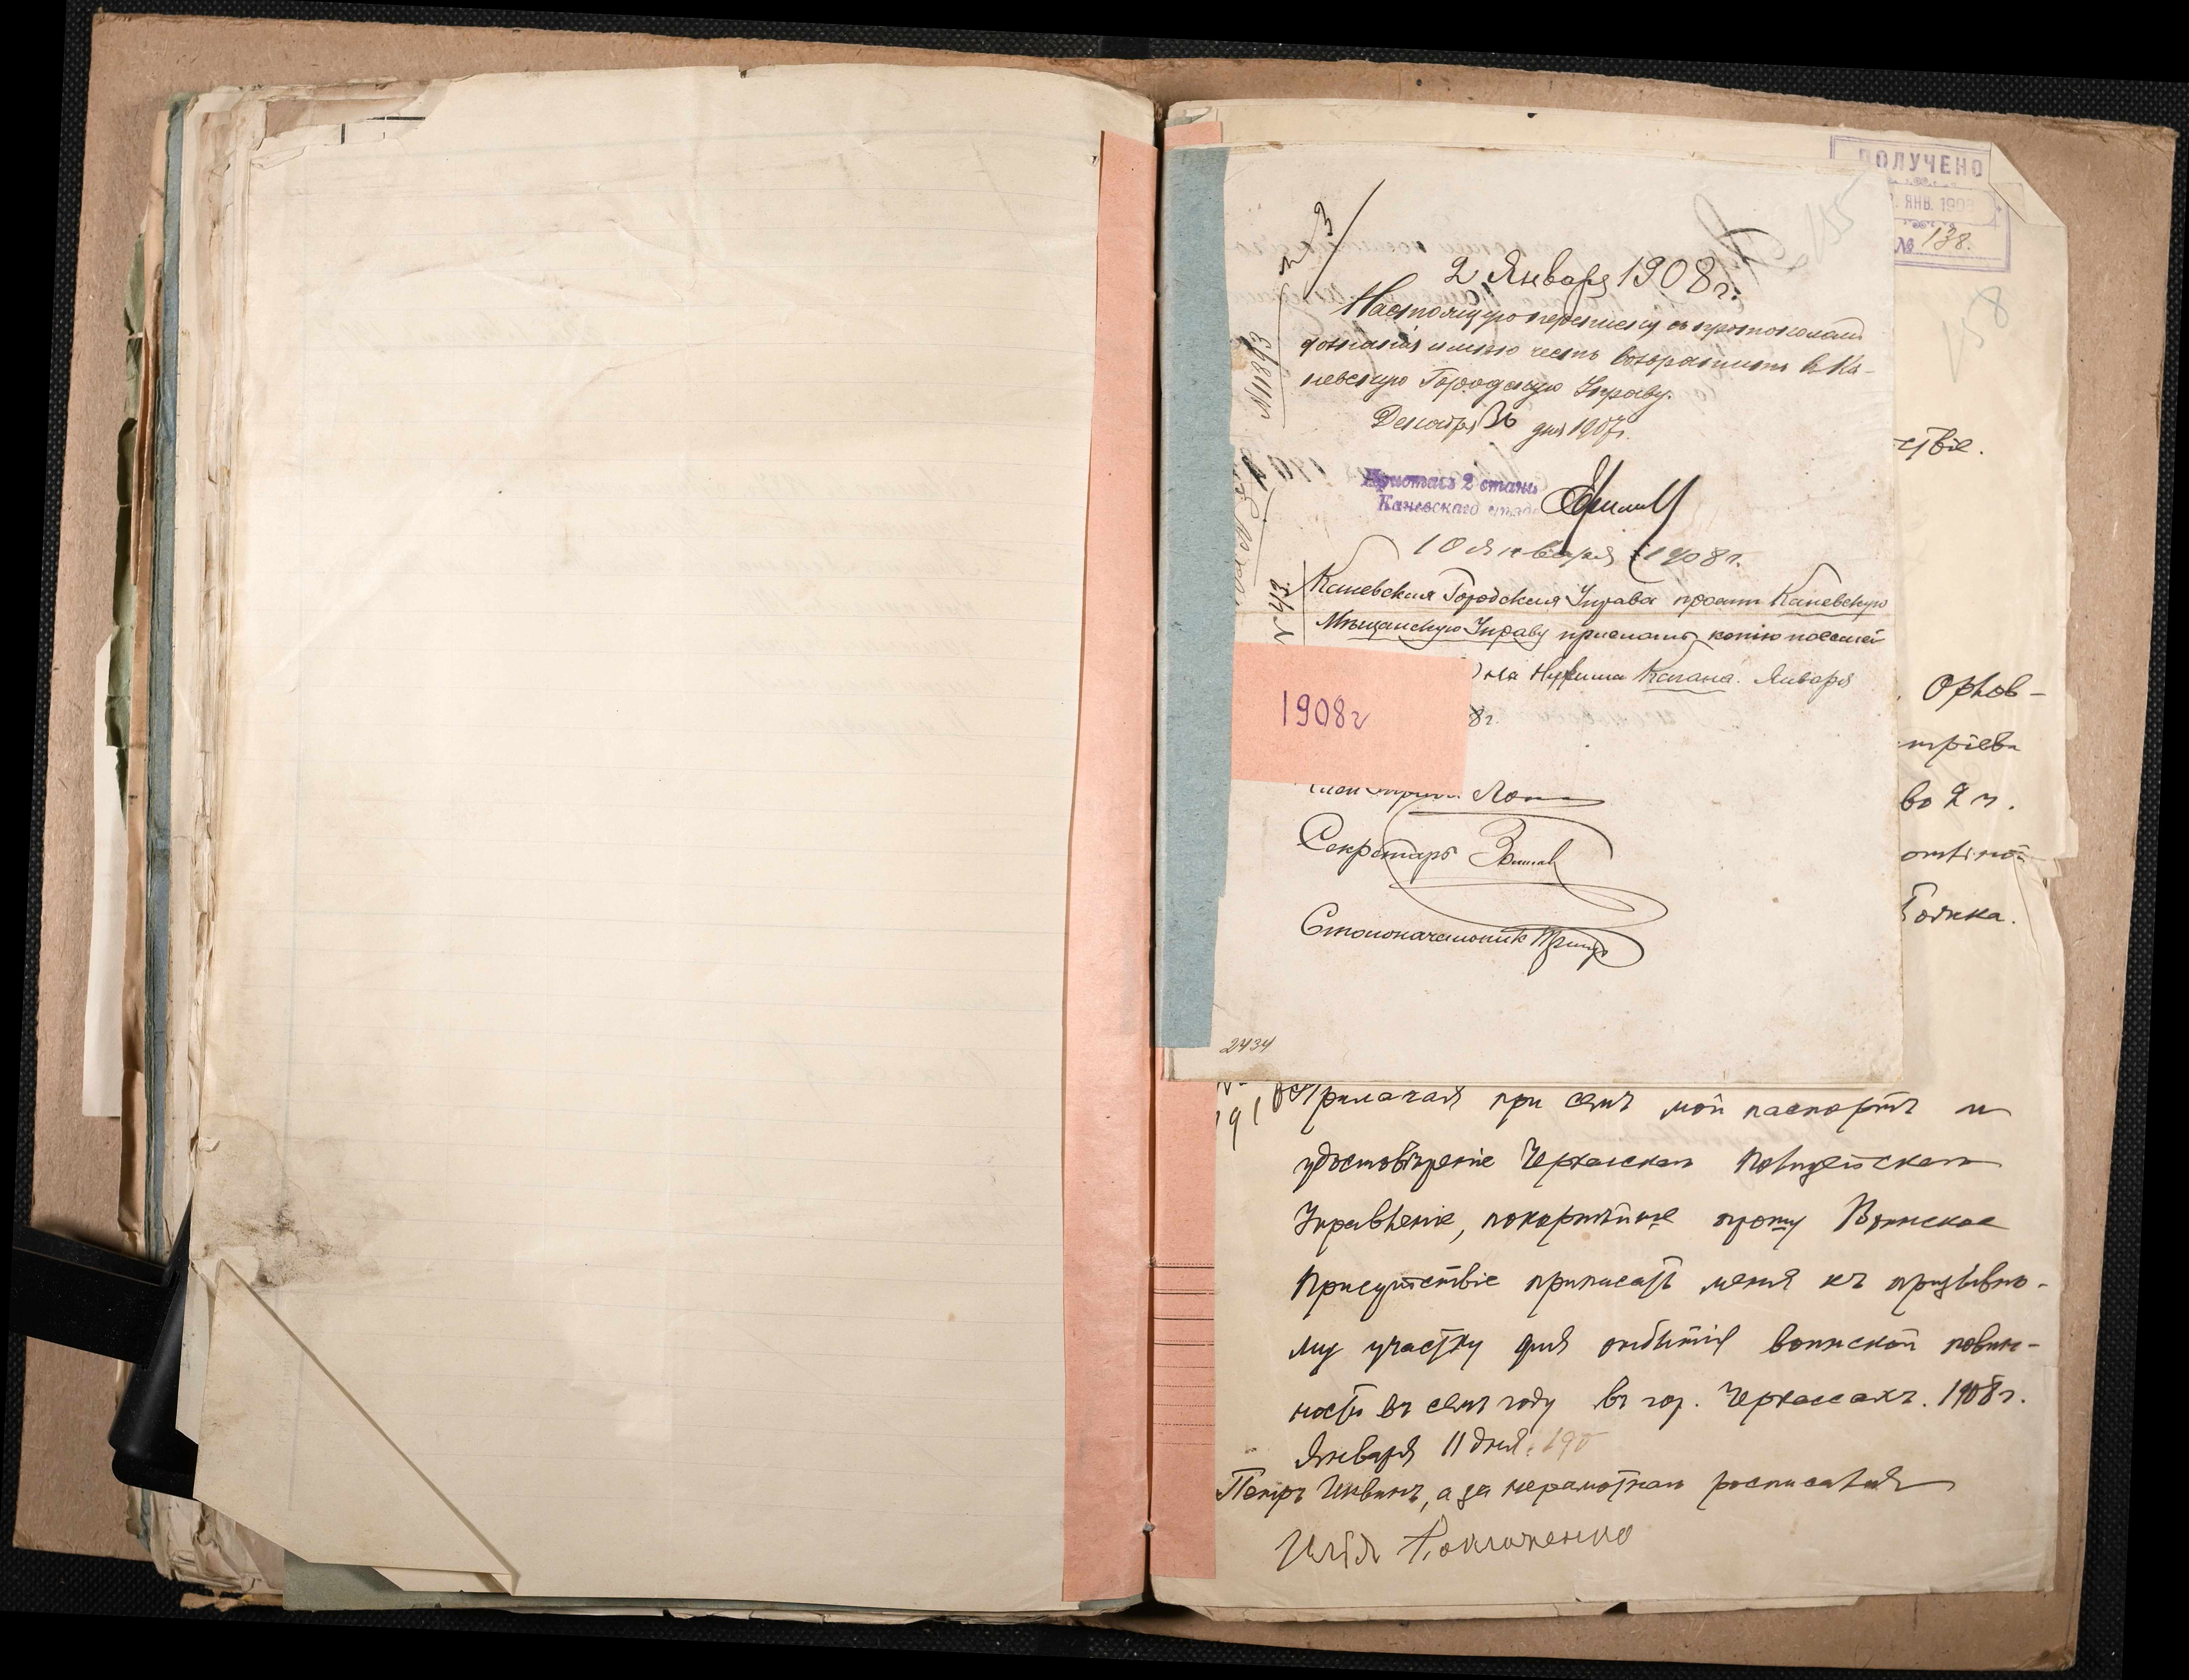 ПОЛУЧЕНО
ЯНВ. 190
№ 138.
158
№ 3
2 Января 1908 г.
Настоящую переписку съ протоколомъ
дознанія имѣю честь возвратить въ Ка-
невскую Городскую Управу.
Декабря 31 дня 1907 г.
Приставъ 2 стана
Каневскаго уѣзда
10 Января 1908 г.
№ 43
Каневская Городская Управа проситъ Каневскую
Мѣщанскую Управу прислать копію посемей
на Нухима Кагана. Января
8 г.
1908 г
Секретарь
Столоначальникъ
2434
ствіе.
во 2 м.
Прилагая при семъ мой паспортъ и
удостовѣреніе Черкасскаго Полицейскаго
Управленія, покорнѣйше прошу Воинское
Присутствіе приписать меня къ призывно-
му участку для отбытія воинской повин-
ности въ семъ году въ гор. Черкассахъ. 1908 г.
Января 11 дня. 190
Петръ а за неграмотнаго росписался
Илія